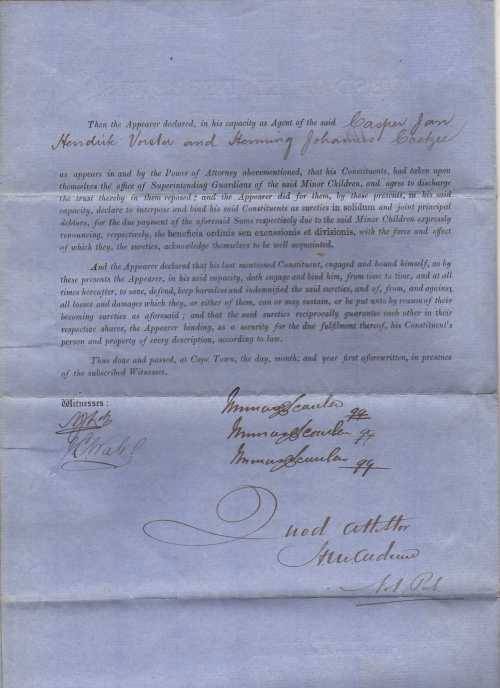 Then the Appearer declared, in his capacity as Agent of the said Casper Jan
Hendrik Vorster and Henning Johannes Coetzee
as appears in and by the Power of Attorney abovementioned, that his Constituents, had taken upon
themselves the office of Superintending Guardians of the said Minor Children, and agree to discharge
the trust thereby in them reposed; and the Appearer did for them, by these presents, in his said
capacity, declare to interpose and bind his said Constituents as sureties in solidum and joint principal
debtors, for the due payment of the aforesaid Sums respectively due to the said Minor Children expressly
renouncing, respectively, the beneficia ordinis seu excussionis et divisionis, with the force and effect
of which they, the sureties, acknowledge themselves to be well acquainted.
And the Appearer declared that his last mentioned Constituent, engaged and bound himself, as by
these presents the Appearer, in his said capacity, doth engage and bind him, from time to time, and at all
times hereafter, to save, defend, keep harmless and indemnified the said sureties, and of, from, and against,
all losses and damages which they, or either of them, can or may sustain, or be put unto by reason of their
becoming sureties as aforesaid; and that the said sureties reciprocally guarantee each other in their
respective shares, the Appearer binding, as a security for the due fulfilment thereof, his Constituent's
person and property of every description, according to law.
Thus done and passed, at Cape Town, the day, month, and year first aforewritten, in presence
of the subscribed Witnesses.
Witnesses:
qq
qq
qq
Quod Attestor
Not Pub